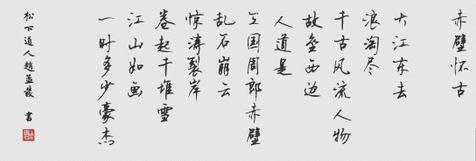 赤壁怀古
大江东去
浪淘尽
千古风流人物
故垒西边
人道是
三国周郎赤壁
乱石崩云
惊涛裂岸
卷起千堆雪
江山如画
一时多少豪杰
松下道人趙益發 书